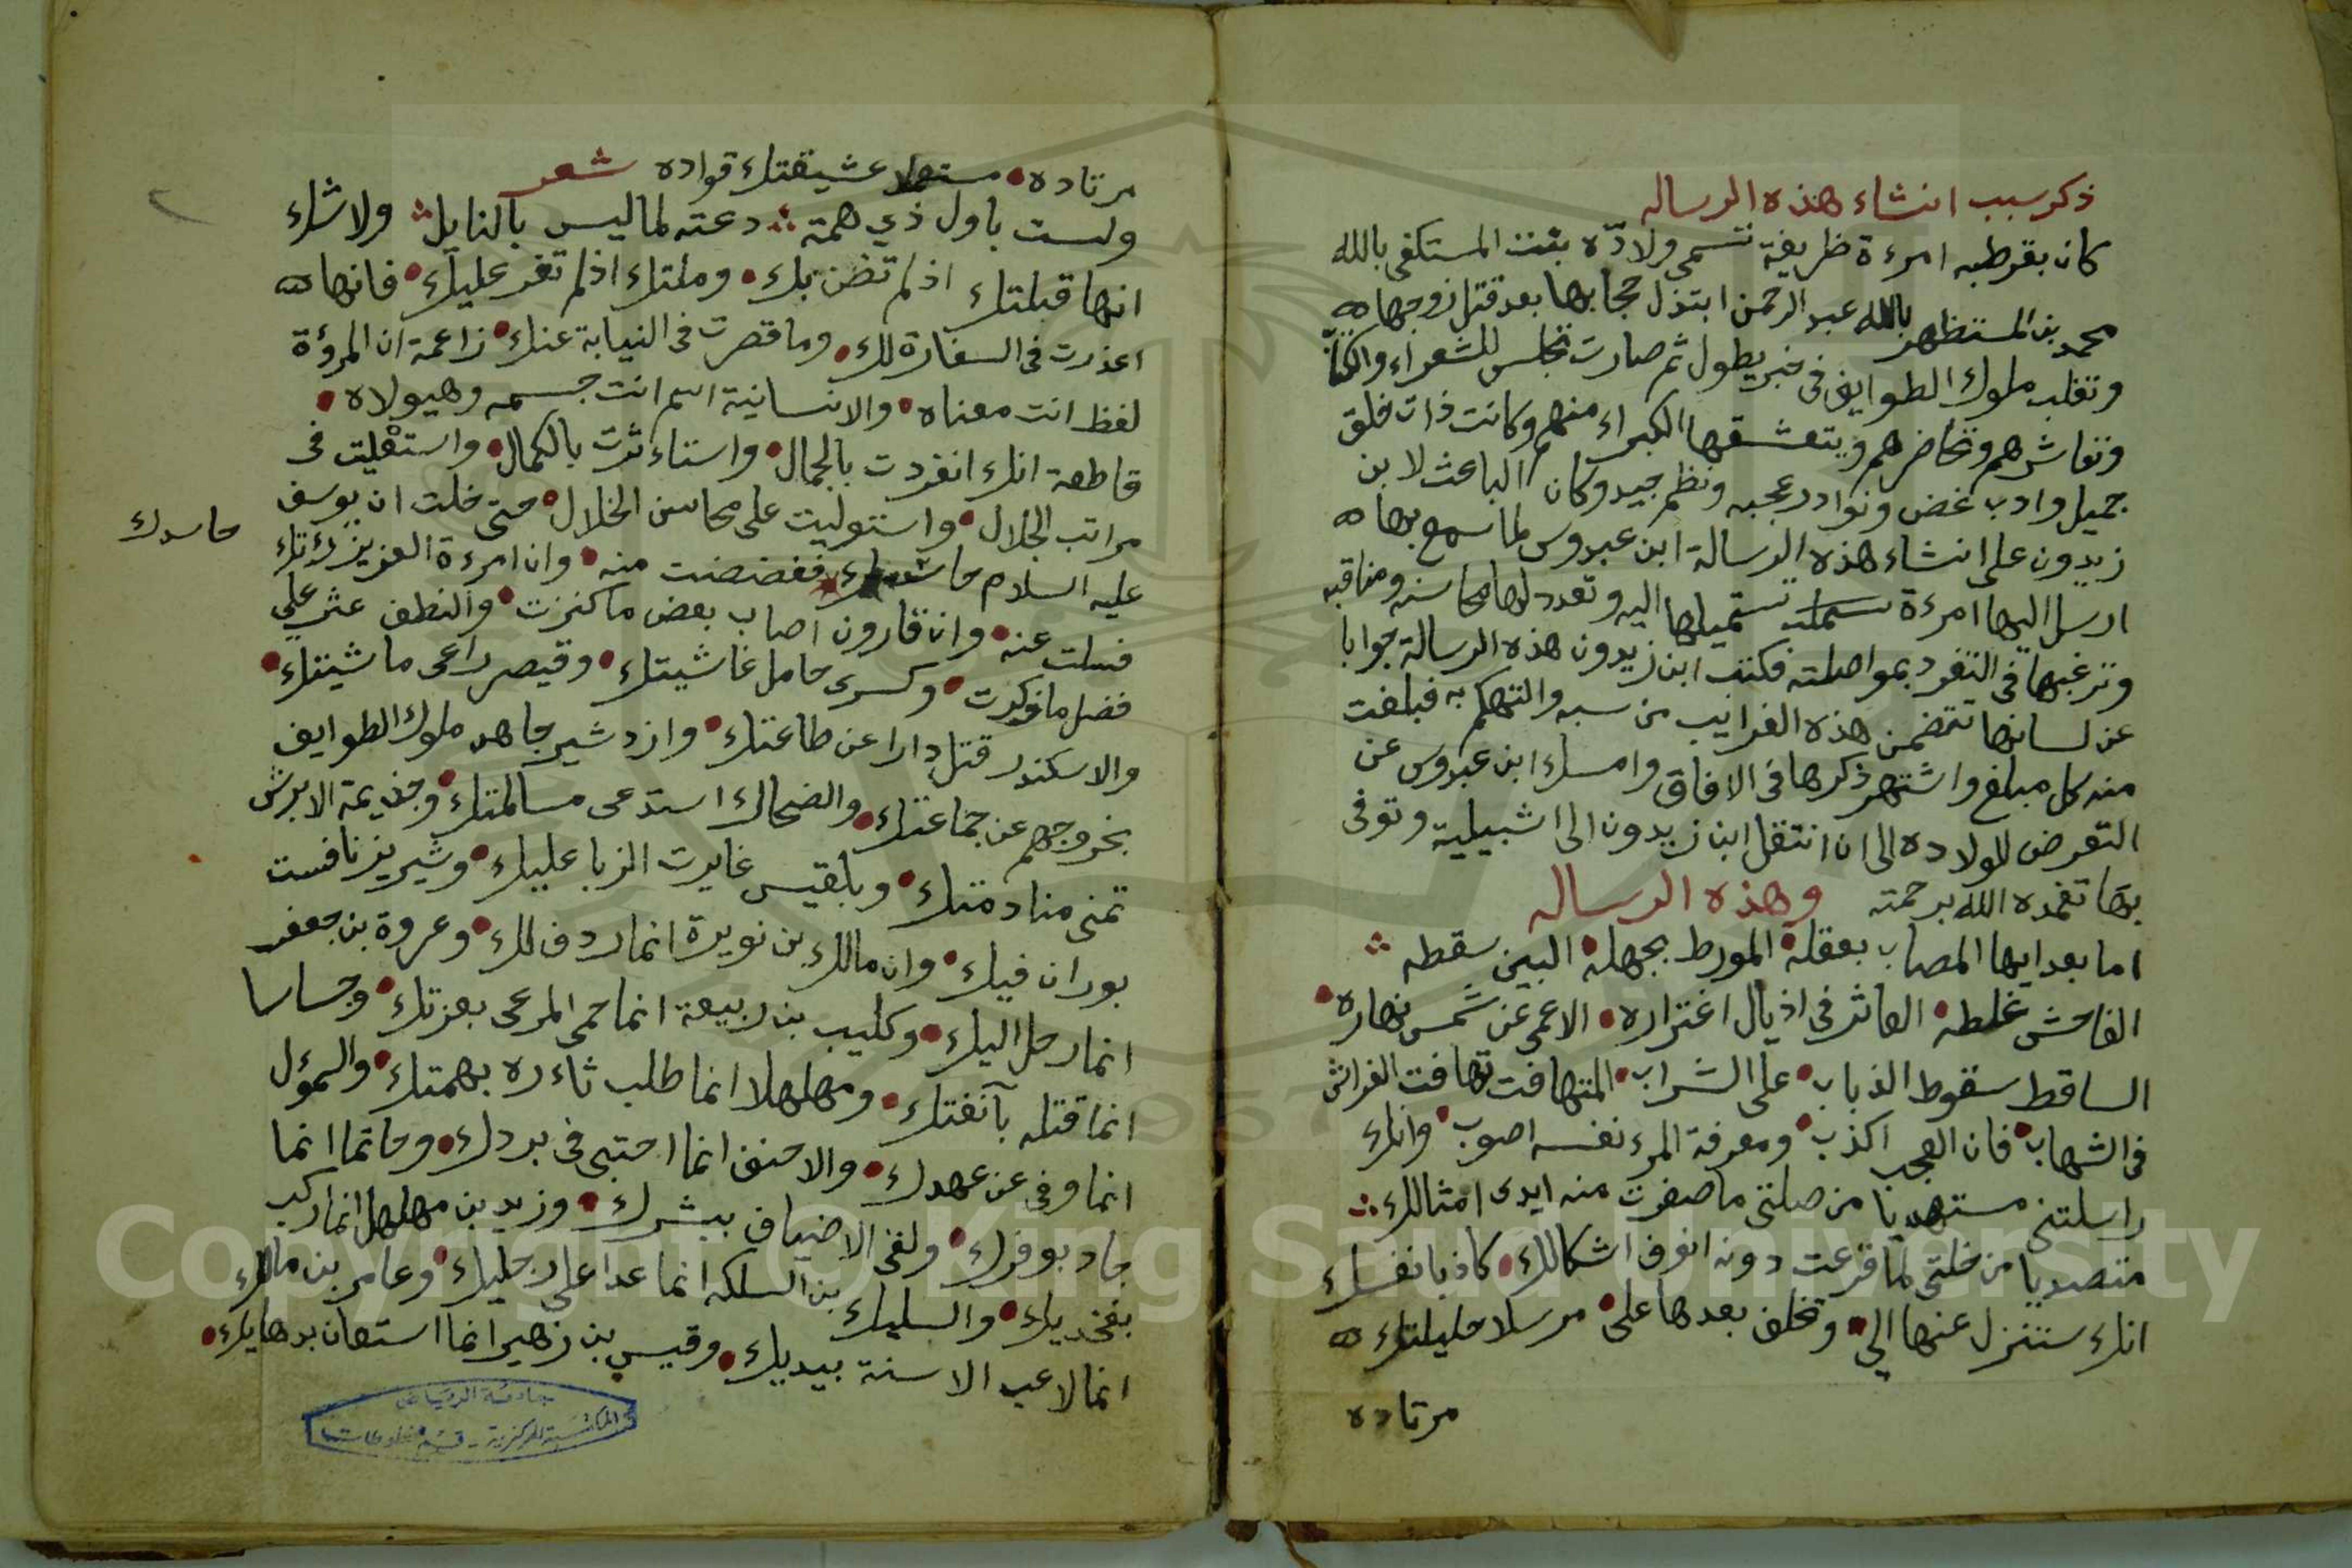 ذكر سبب انشاء هذه الرساله
كان بقرطبه امرءة ظريفة تسمى ولادّه بنت المستكفى بالله
محمد بن المستظهر بالله عبد الرحمن ابتذل حجابها بعد قتل زوجها
وتغلب ملوك الطوايف فى خبر يطول ثم صارت تجلس للشعراء والكتاب
وتعاشرهم وتحاضرهم ويتعشقها الكبراء منهم وكانت ذات خلق
جميل وادب غض ونوادر عجبه ونظم جيد وكان الباعث لابن
زيدون على انشاء هذه الرسالة ابن عبدوس لما سمع بها
ارسل اليها امرءة تستميلها اليه وتعدد لها محاسنه ومناقبه
وترغبها فى التفرد بمواصلته فكتب ابن زيدون هذه الرسالة جوابا
عن لسانها تتضمن هذه الغرايب من سبه والتهكم به فبلغت
منه كل مبلغ واشتهر ذكرها فى الافاق وامسك ابن عبدوس عن
التعرض للولاده الى ان انتقل ابن زيدون الى اشبيلية وتوفى
بها تغمده الله برحمته وهذه الرساله
اما بعد ايها المصاب بعقله المورط بجهله البين سقطه
الفاحش غلطه العاثر فى اذيال اغتراره الاعمى عن شمس نهاره
الساقط سقوط الذباب على الشراب المتهافت تهافت الفراش
فى الشهاب فان العجب اكذب ومعرفة المرء نفسه اصوب وانك
راسلتنى مستهديا من صلتى ما صفرت منه ايدى امثالك
متصديا من خلتى لما قرعت دونه انوف اشكالك كاذبا نفسك
انك ستنزل عنها الي وتخلف بعدها على مرسلا خليلتك
مرتاده
مرتاده مستعملا عشيقتك قواده شعر
ولست باول ذي همة دعته لما ليس بالنايل ولا شك
انها قبلتك اذ لم تضن بك وملتك اذ لم تغر عليك فانها
اعذرت فى السفارة لك وما قصرت فى النيابة عنك زاعمة ان المرؤة
لفظ انت معناه والانسانية اسم انت جسمه وهيولاه
قاطعة انك انفردت بالجمال واستاءثرت بالكمال واستعليت فى
مراتب الجلال واستوليت على محاسن الخلال حتى خلت ان يوسف
عليه السلام حاسدك فغضضت منه وان امرءة العزيز رءتك
حاسدك
فسلت عنه وان قارون اصاب بعض ما كنزت والنطف عثر على
فضل ما ركزت وكسرى حامل غاشيتك وقيصر راعى ماشيتك
والاسكندر قتل دارا عن طاعتك وازدشير جاهد ملوك الطوايف
بخروجهم عن جماعتك والضحاك استدعى مسالمتك وجذيمة الابرش
تمنى منادمتك وبلقيس غايرت الزبا عليك وشيرين نافست
بوران فيك وان مالك بن نويرة انما ردف لك وعروة بن جعفر
انما رحل اليك وكليب بن ربيعة انما حمى المرعى بعزتك وجساسا
انما قتله بآنفتك ومهلهلا انما طلب ثاءره بهمتك والسموءل
انما وفى عن عهدك والاحنف انما احتبى فى بردك وحاتما انما
جاد بوفرك ولقى الاضياف ببشرك وزيد بن مهلهل انما ركب
بفخذيك والسليك بن السلكه انما عدا على رجليك وعامر بن مالك
انما لاعب الاسنة بيديك وقيس بن زهير انما استعان بدهايك
جامعة الرياض
المكتبة المركزية - قسم مخطوطات
Copyright © King Saud University
1957